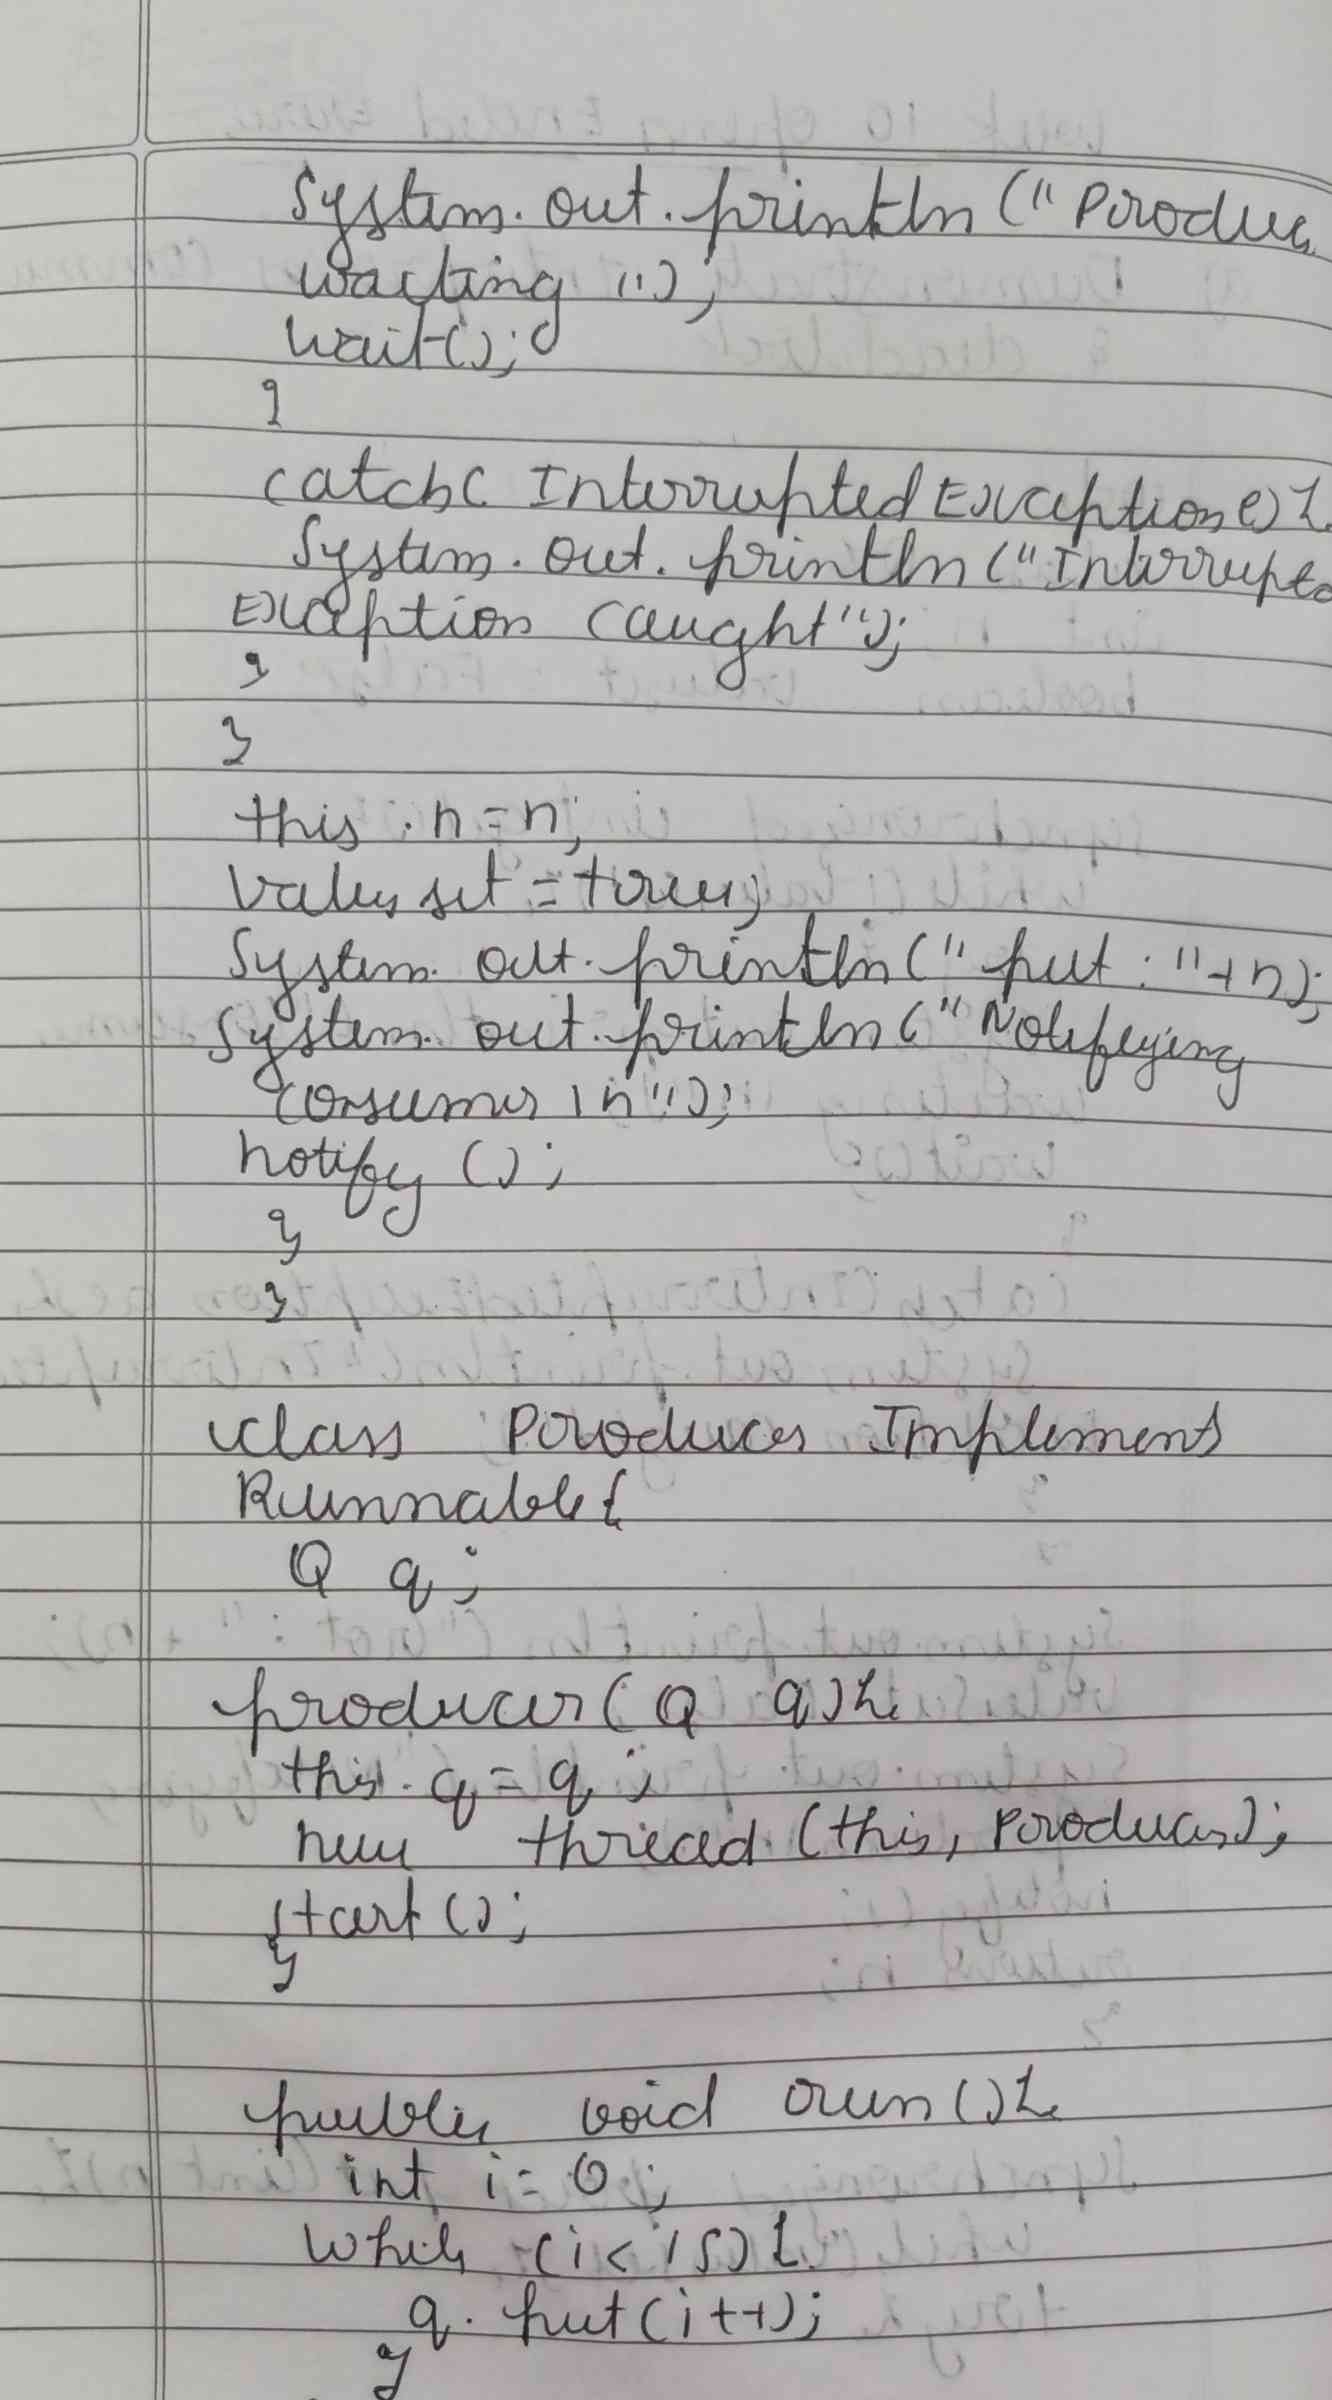 System.out.println("Produc
waiting");
wait();
}
catch( Interrupted Exception e){
System.out.println("Interrupte
Exception caught");
}
}
this.n=n;
value set = true;
System.out.println("put : "+n);
System.out.println("Notifying
consumer \n");
notify ();
}
}
class Producer Implements
Runnable{
Q q;
producer( Q q){
this.q=q;
new thread (this, Producer);
start();
}
public void run(){
int i=0;
while (i<15){
q. put(i++);
}